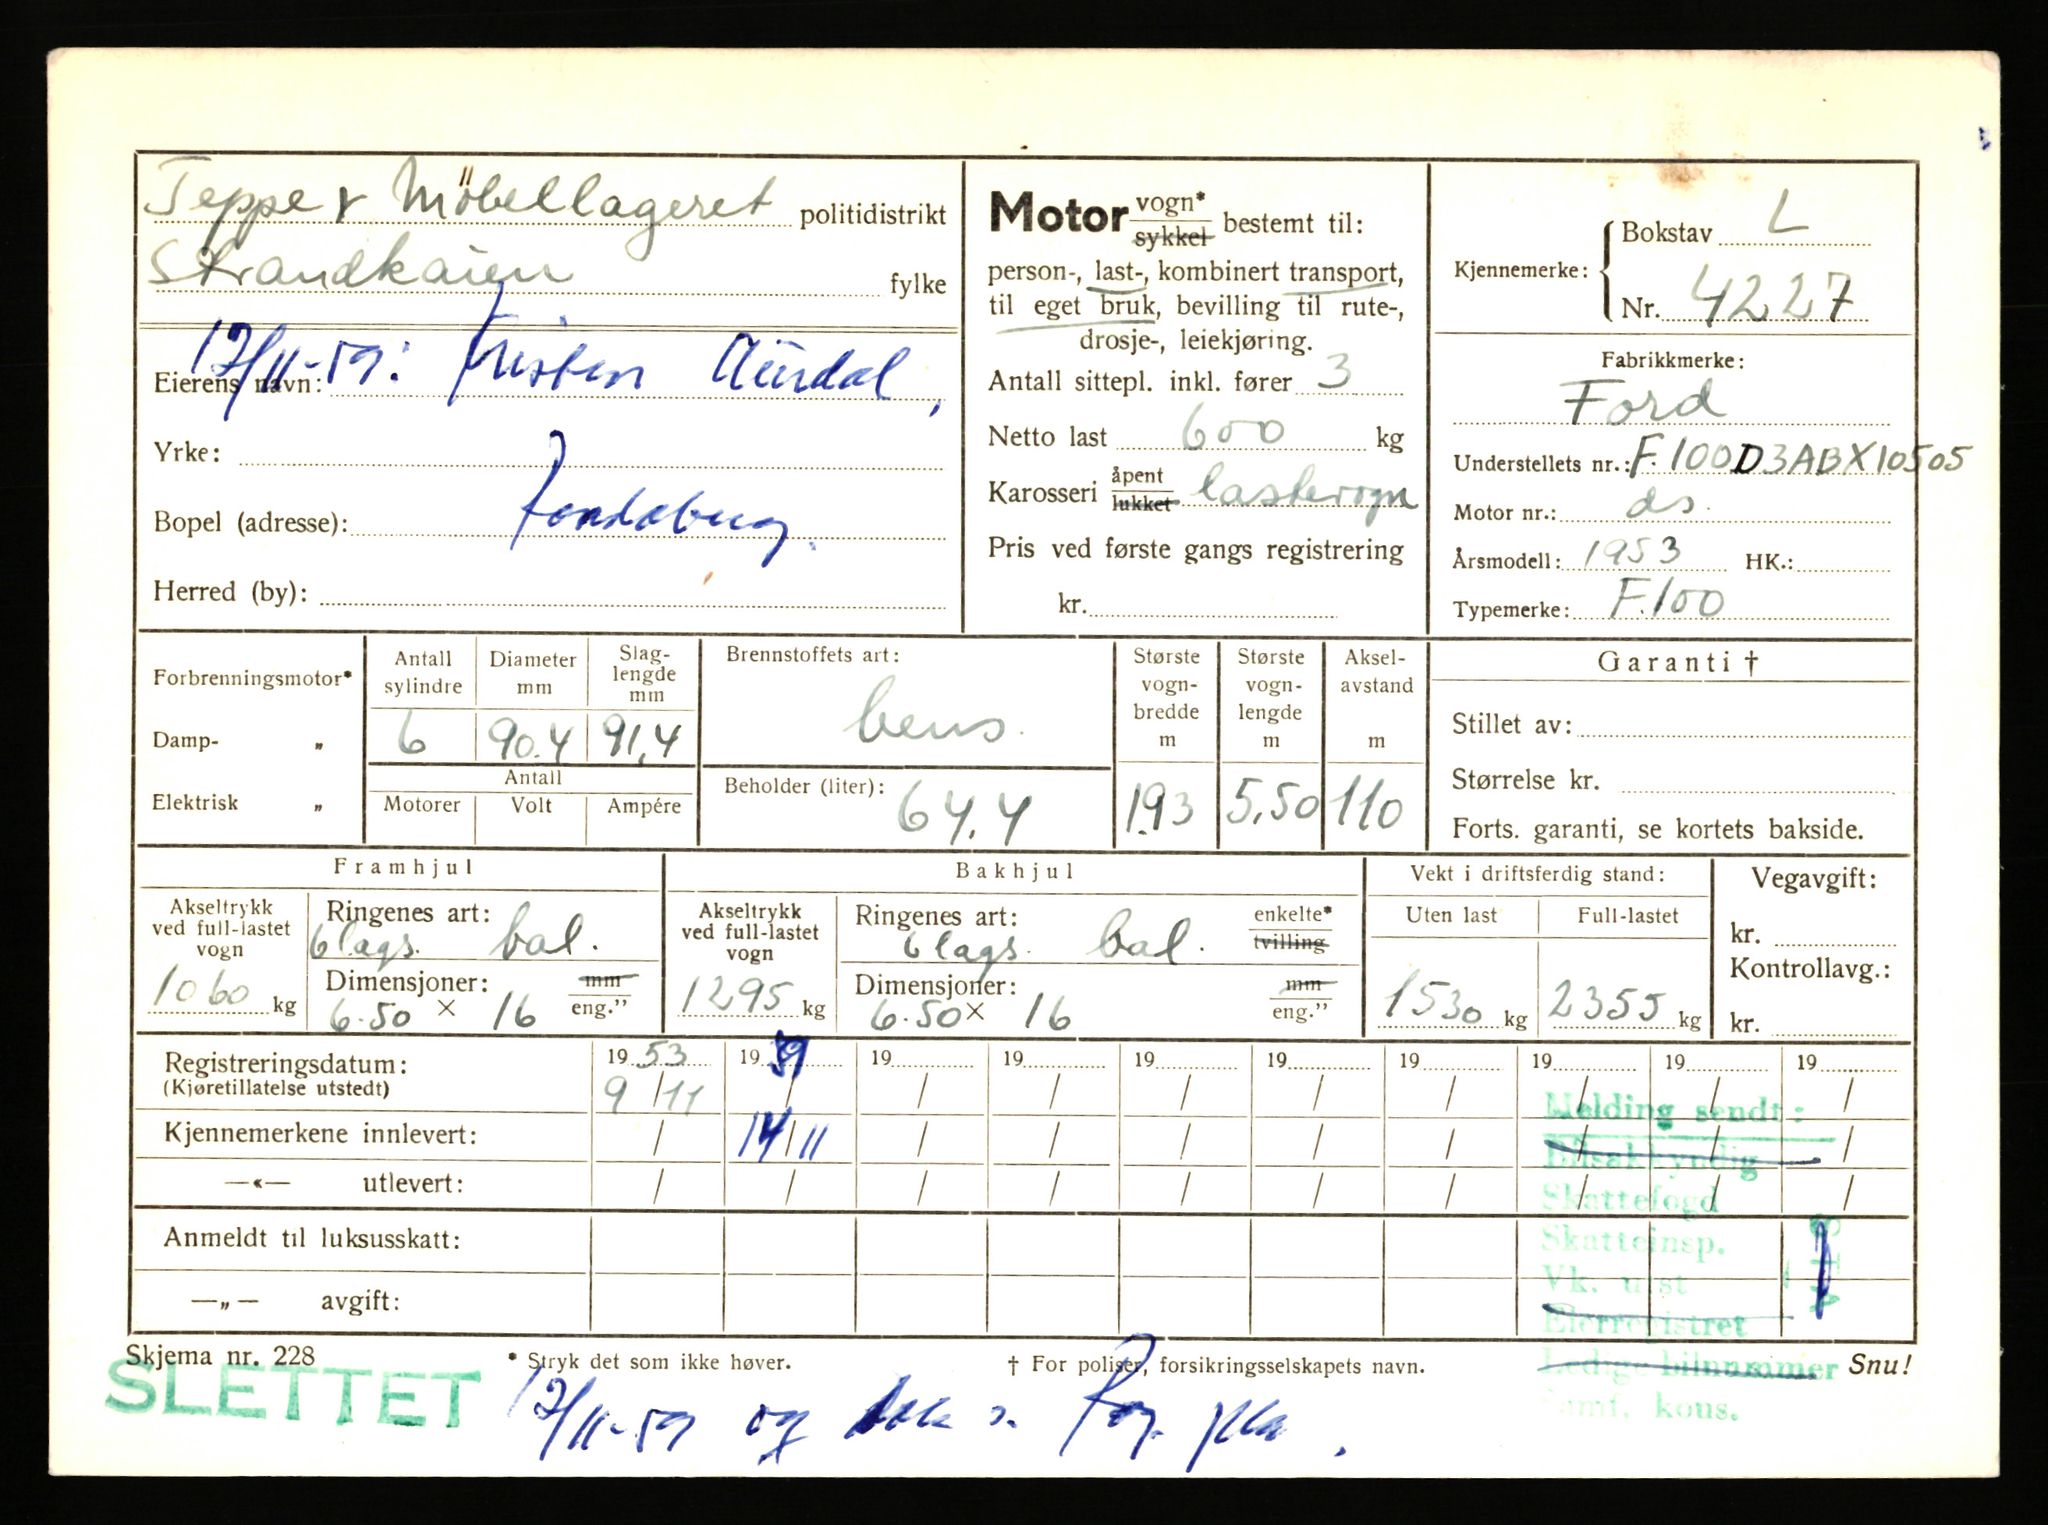 Teppe & Möbellageret politidistrikt
Strandkaien fylke
Eierens navn: 17/11-59: Kristen Aurdal,
Yrke:
Bopel (adresse):
Herred (by):
Motor vogn* sykkel bestemt til:
person-, last-, kombinert transport,
til eget bruk, bevilling til rute-,
drosje-, leiekjøring.
Antall sittepl. inkl. fører 3
Netto last 600 kg
Karosseri åpent lukket lastevogn
Pris ved første gangs registrering
kr.
Kjennemerke: Bokstav L
Nr. 4227
Fabrikkmerke:
Ford
Understellets nr.: F.100D3ABX10505
Motor nr.: ds.
Årsmodell: 1953 HK.:
Typemerke: F.100
Forbrenningsmotor*
Damp- „
Elektrisk „
Antall sylindre 6
Diameter mm 90.4
Slag-lengde mm 91,4
Antall
Motorer Volt Ampére
Brennstoffets art:
bens.
Beholder (liter): 64.4
Største vogn-bredde m 1.93
Største vogn-lengde m 5.50
Aksel-avstand m 110
Garanti †
Stillet av:
Størrelse kr.
Forts. garanti, se kortets bakside.
Framhjul
Akseltrykk ved full-lastet vogn 1060 kg
Ringenes art: 6 lags. bal.
Dimensjoner: mm eng.”
6.50 × 16
Bakhjul
Akseltrykk ved full-lastet vogn 1295 kg
Ringenes art: enkelte* tvilling
6 lags. bal.
Dimensjoner: mm eng.”
6.50 × 16
Vekt i driftsferdig stand:
Uten last 1530 kg
Full-lastet 2355 kg
Vegavgift:
kr.
Kontrollavg.:
kr.
Registreringsdatum: 19 53 19 59 19 19 19 19 19 19 19 19
(Kjøretillatelse utstedt) 9/11 / / / / / / / / /
Kjennemerkene innlevert: / 14/11 / / / / / / / /
—«— utlevert: / / / / / / / / / /
Anmeldt til luksusskatt:
—„— avgift:
Melding sendt:
Bilsakkyndig
Skattefogd
Skatteinsp.
Vk. utst
Eierregistret
Ledige bilnummer
Samf. kons.
Skjema nr. 228 * Stryk det som ikke høver. † For poliser, forsikringsselskapets navn. Snu!
SLETTET
17/11-59 og